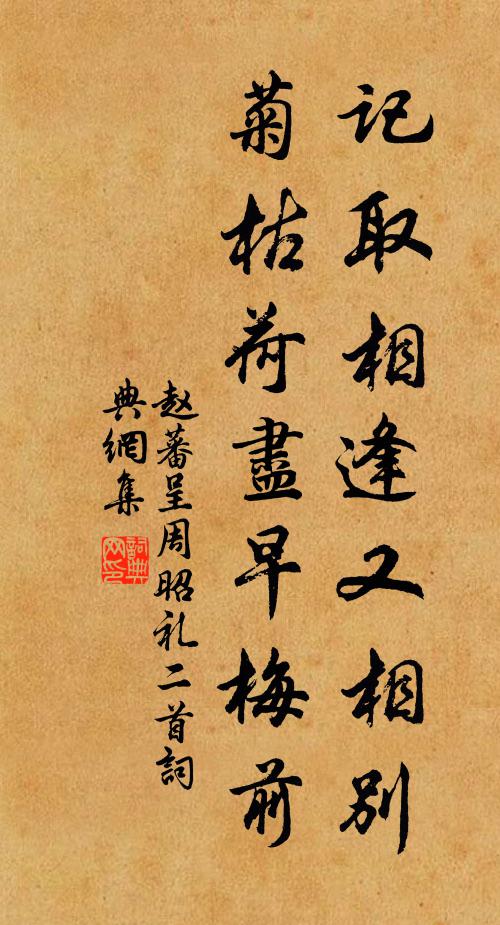 记取相逢又相别
菊枯荷盡早梅前
赵蕃呈周昭礼二首詞
典網集
詞典
网印